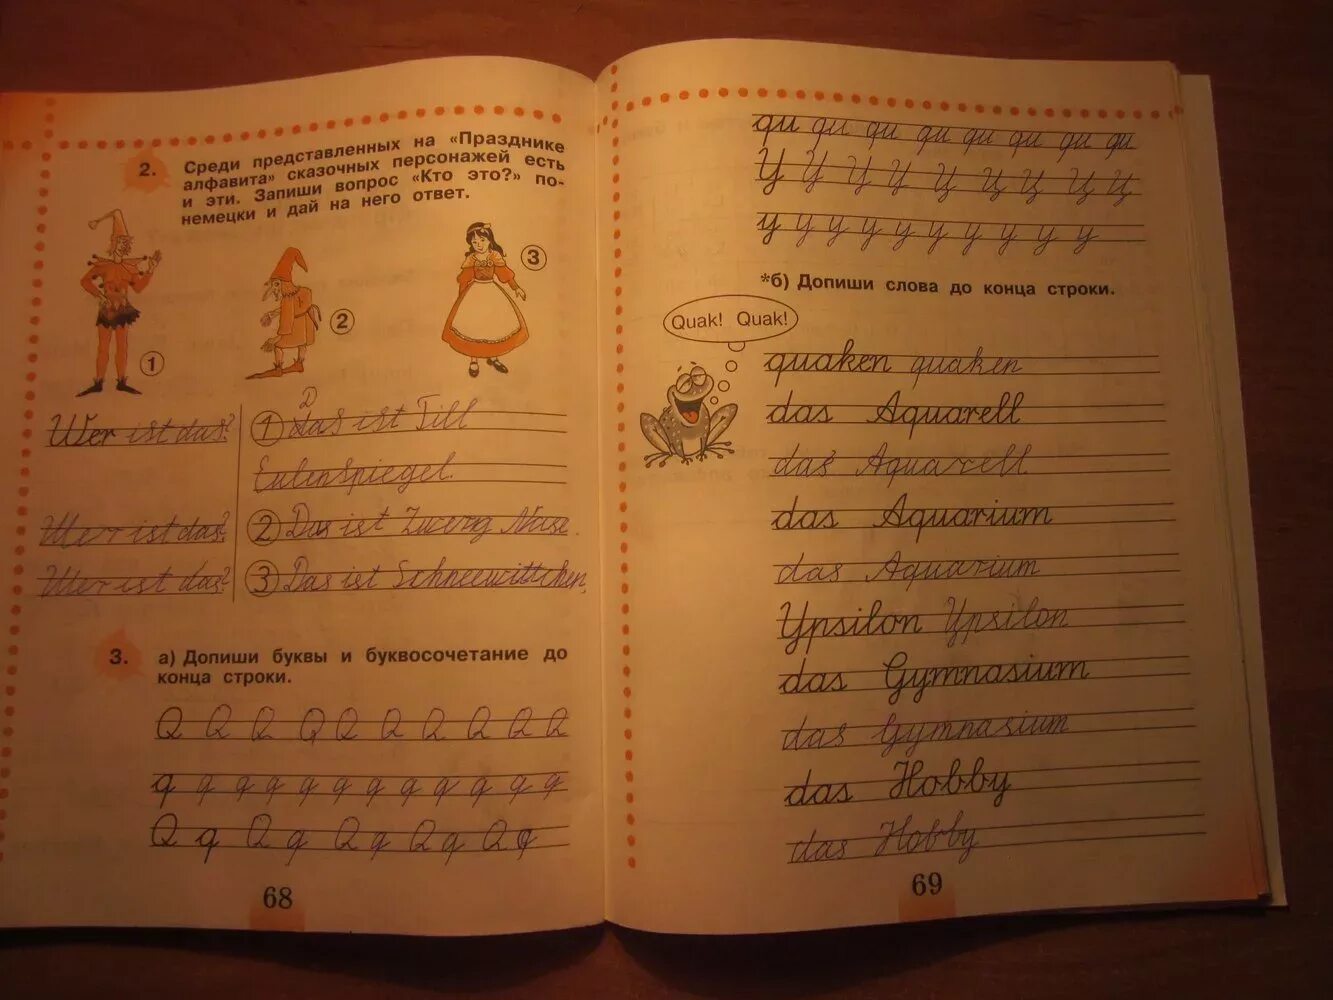 2. Среди представленных на «Празднике
алфавита» сказочных персонажей есть
и эти. Запиши вопрос «Кто это?» по-
немецки и дай на него ответ.
1
2
3
Wer ist das? 1 Das ist Till
Eulenspiegel.
Wer ist das? 2 Das ist Zwerg Nase.
Wer ist das? 3 Das ist Schneewittchen.
3. а) Допиши буквы и буквосочетание до
конца строки.
Q Q Q Q Q Q Q Q Q Q
q q q q q q q q q q q
Q q Q q Q q Q q Q q
68
qu qu qu qu qu qu qu qu
Y Y Y Y Y Y Y Y Y
y y y y y y y y y y
*б) Допиши слова до конца строки.
Quak! Quak!
quaken quaken
das Aquarell
das Aquarell
das Aquarium
das Aquarium
Ypsilon Ypsilon
das Gymnasium
das Gymnasium
das Hobby
das Hobby
69